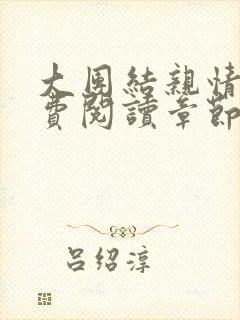 大团結親情
費閱讀章節
呂绍淳